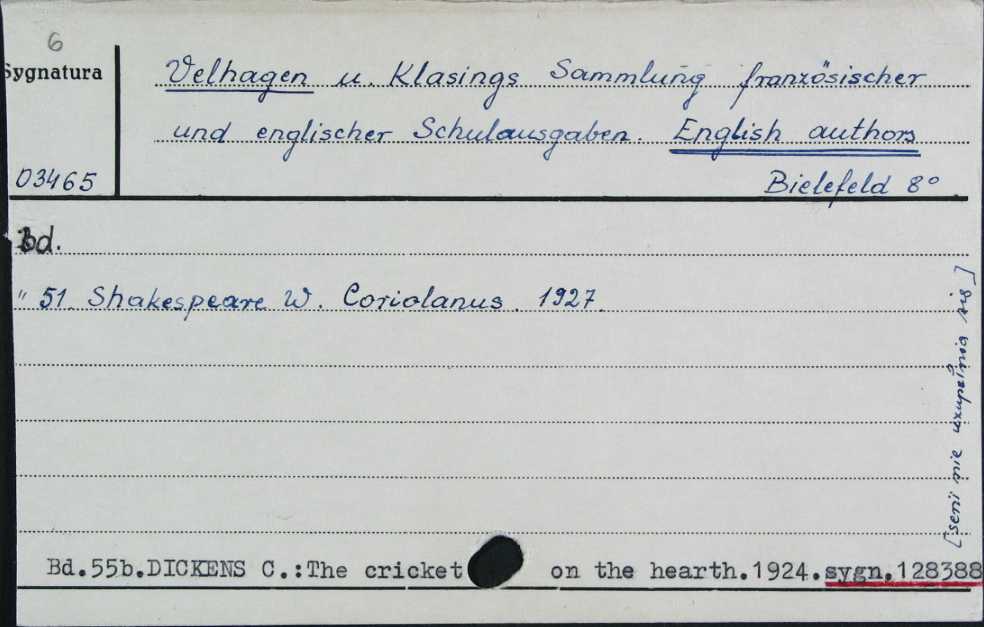 6
Sygnatura
Velhagen u. Klasings Sammlung französischer
und englischer Schulausgaben. English authors
03465
Bielefeld 8°
Bd.
" 51. Shakespeare W. Coriolanus. 1927.
[serii nie uzupełnia się]
Bd.55b.DICKENS C.:The cricket on the hearth.1924.sygn.128388